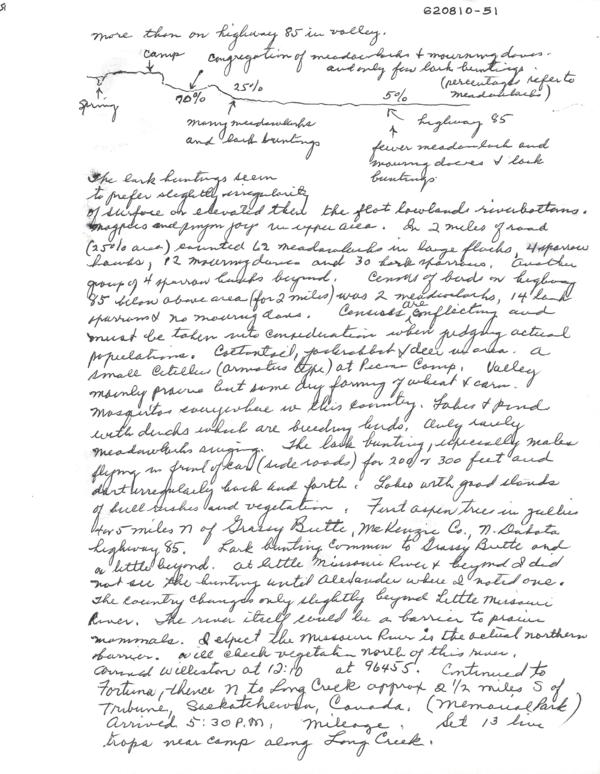 620810-51
more than on highway 85 in valley.
camp
congregation of meadowlarks & mourning doves.
and only few lark buntings.
(percentages refer to
meadowlarks)
spring
70%
25%
5%
many meadowlarks
and lark buntings
highway 85
fewer meadowlark and
mourning doves & lark
buntings.
The lark buntings seem
to prefer slightly irregularity
of surface or elevated than the flat lowlands riverbottoms.
magpies and pinyon jays in upper area. In 2 miles of road
(25% area) counted 62 meadowlarks in large flocks, 4 sparrow
hawks, 12 mourning doves and 30 lark sparrows. Another
group of 4 sparrow hawks beyond. Census of birds on highway
85 below above area (for 2 miles) was 2 meadowlarks, 14 lark
sparrows & no mourning doves. Census are conflicting and
must be taken into consideration when judging actual
populations. Cottontail, jackrabbit & deer in area. A
small Citellus (armatus type) at Camp. Valley
mainly prairie but some dry farming of wheat & corn.
Mosquitos everywhere in this country. Lakes & pond
with ducks which are breeding birds. Only rarely
meadowlarks singing. The lark bunting, especially males
flying in front of car (side roads) for 200 or 300 feet and
dart irregularly back and forth. Lakes with good stands
of bull rushes and vegetation. First aspen tree in gullies
4 or 5 miles N of Grassy Butte, McKenzie Co., N. Dakota
highway 85. Lark bunting common to Grassy Butte and
a little beyond. At little Missouri River & beyond I did
not see the bunting until Alexander where I noted one.
The country changes only slightly beyond Little Missouri
River. The river itself could be a barrier to prairie
mammals. I expect the Missouri River is the actual northern
barrier. Will check vegetation north of this river.
Arrived Williston at 12:10 at 96455. Continued to
Fortuna, thence N to Long Creek approx 2 1/2 miles S of
Tribune, Saskatchewan, Canada. (Memorial Park)
Arrived 5:30 P.M. Mileage. Set 13 live
traps near camp along Long Creek.